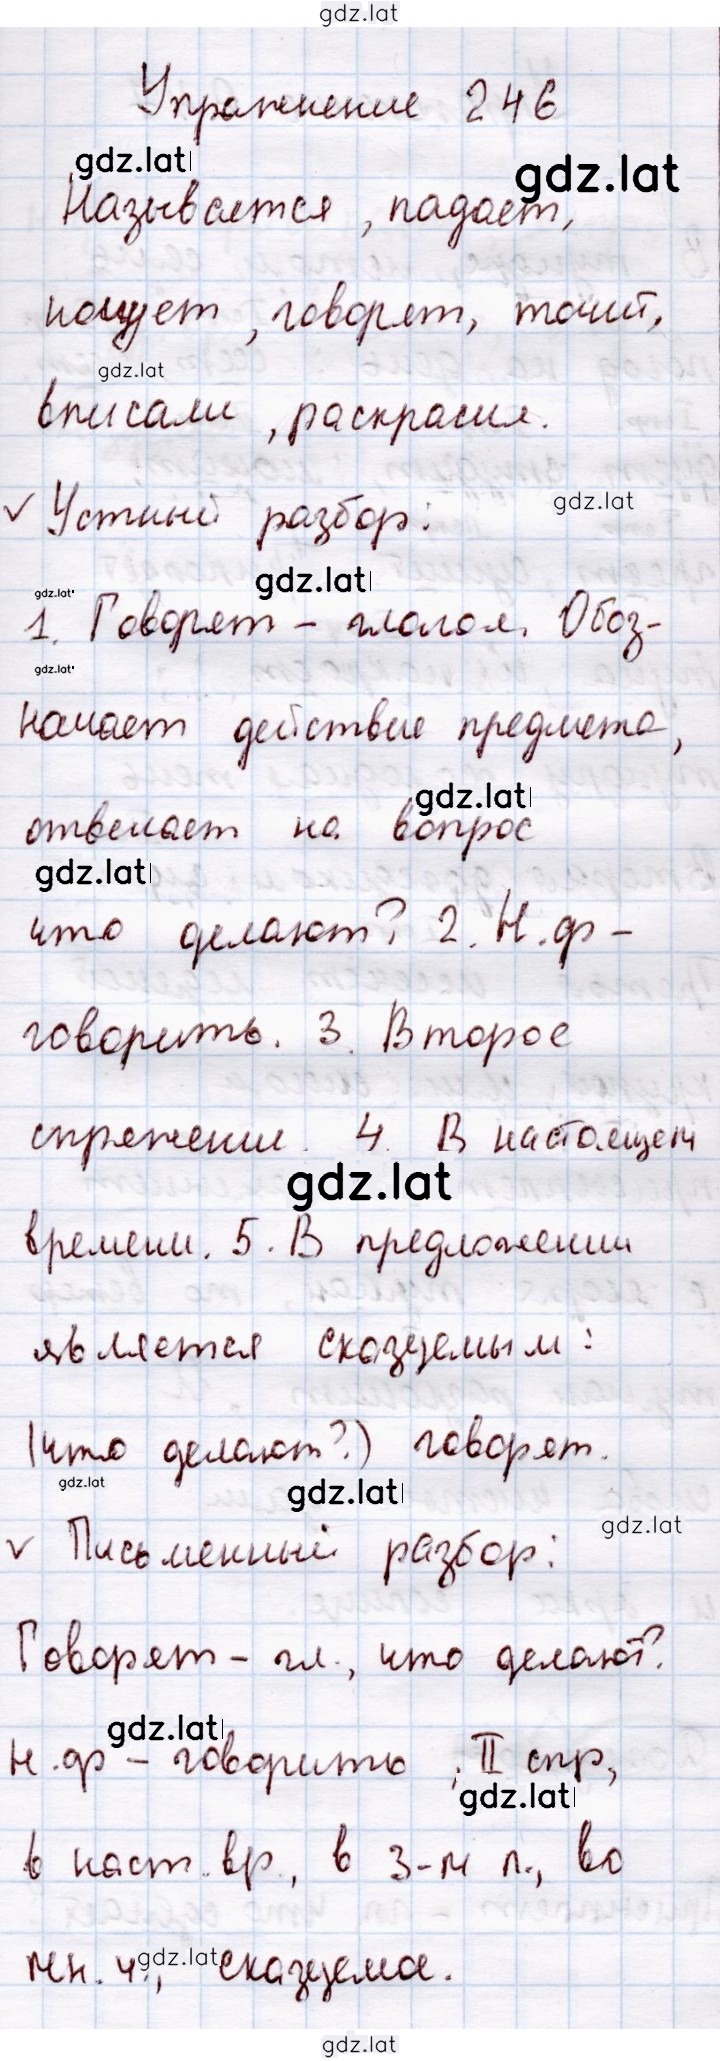 gdz.lat
Упражнение 246
gdz.lat gdz.lat
Называется, падает,
ночует, говорят, точит,
gdz.lat
вписали, раскрасил.
✓ Устный разбор:
gdz.lat
gdz.lat
gdz.lat
1. Говорят – глагол. Обоз-
gdz.lat
начает действие предмета,
gdz.lat
отвечает на вопрос
gdz.lat
что делают? 2. Н.ф –
говорить. 3. Второе
спряжении. 4. В настоящем
gdz.lat
времени. 5. В предложении
является сказуемым:
(что делают?) говорят.
gdz.lat
gdz.lat
gdz.lat
✓ Письменный разбор:
Говорят – гл., что делают?
gdz.lat
н.ф – говорить, II спр,
gdz.lat
в наст. вр., в 3-м л., во
gdz.lat
мн. ч., сказуемое.
gdz.lat